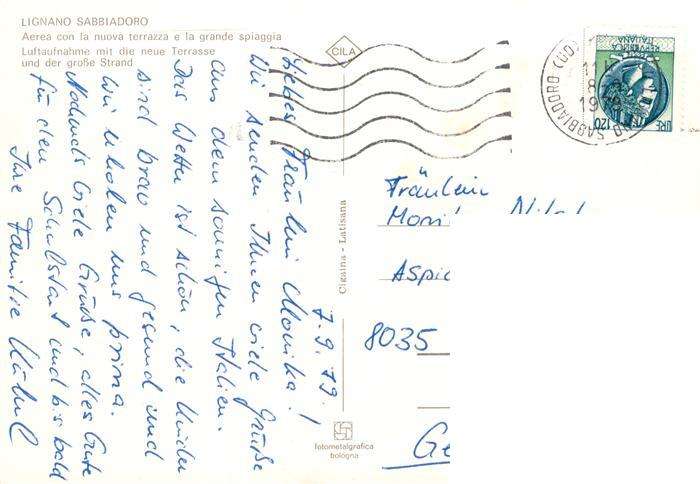 LIGNANO SABBIADORO
Aerea con la nuova terrazza e la grande spiaggia
Luftaufnahme mit die neue Terrasse
und der große Strand
CILA
7.9.79
Liebes Fräulein Monika!
Wir senden Ihnen viele Grüße
aus dem sonnigen Italien.
Das Wetter ist schön, die Kinder
sind brav und gesund und
wir erholen uns prima.
Nochmals viele Grüße, alles Gute
für den Schulstart und bis bald
Ihre Familie
Cigaina - Latisana
fotometalgrafica
bologna
Fräulein
Moni
Aspic
8035
Ge
SABBIADORO (UD)
1979
REPUBBLICA
ITALIANA
LIRE 120